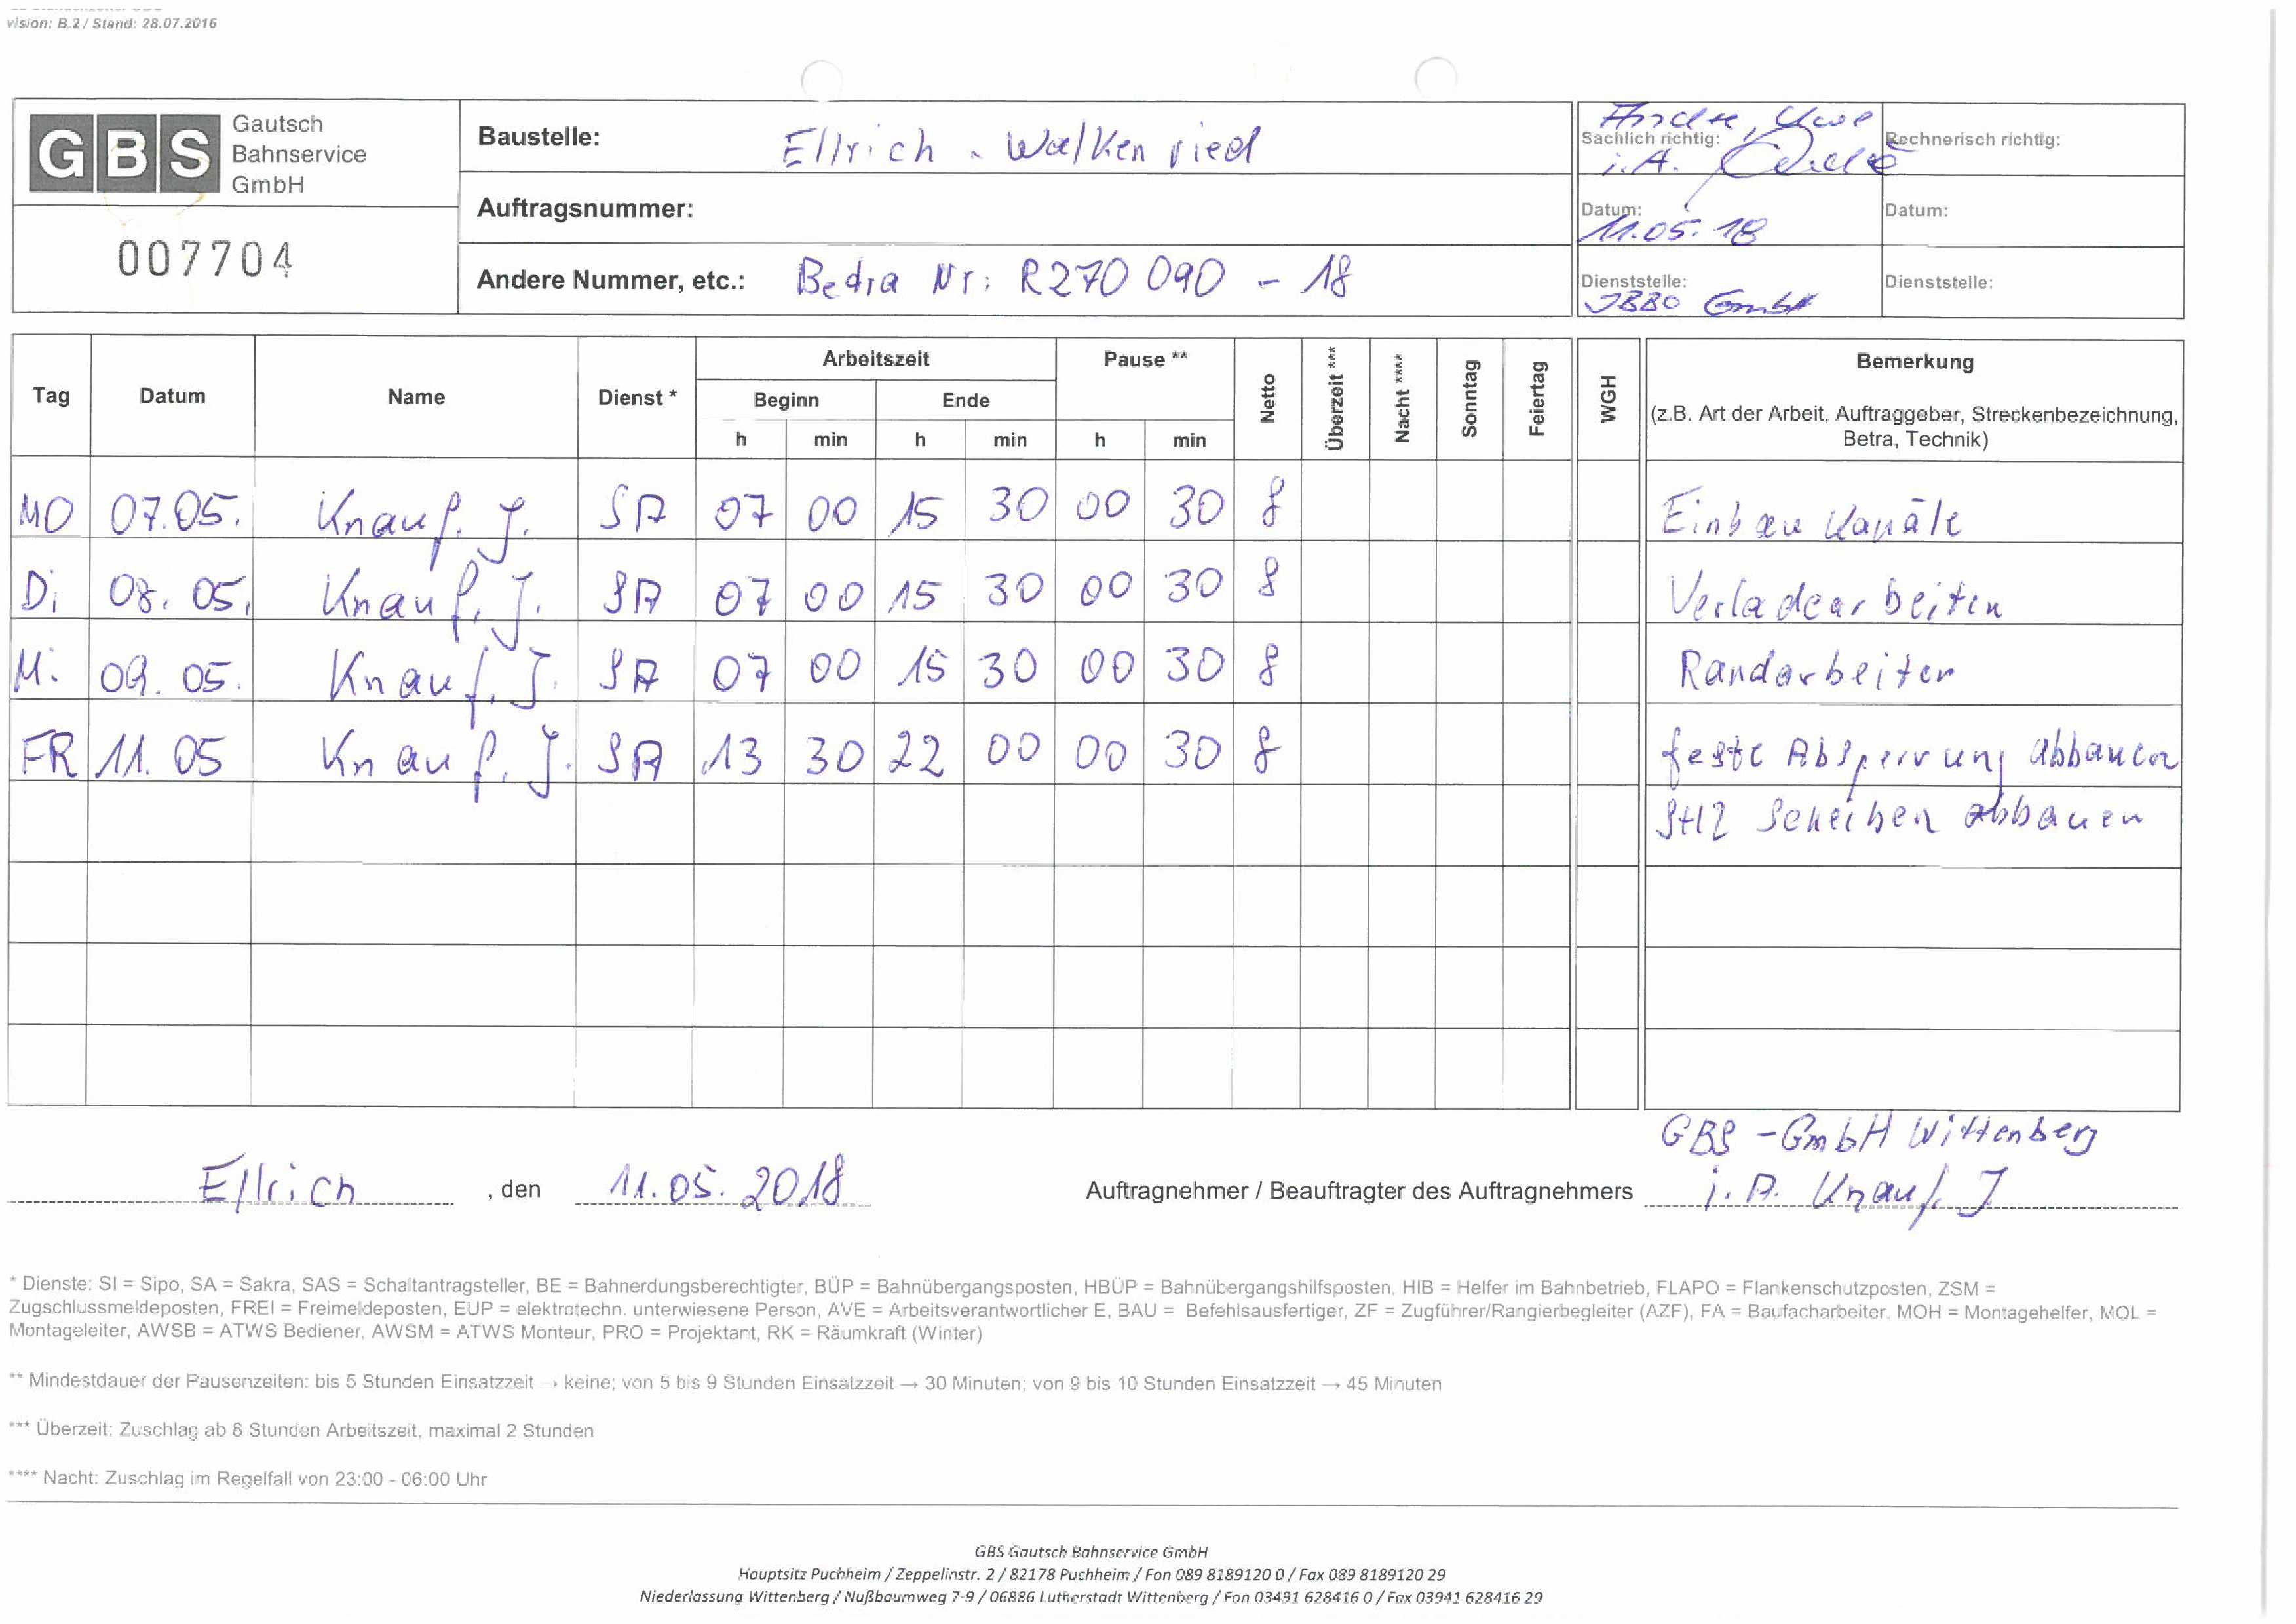 vision: B.2 / Stand: 28.07.2016
GBS Gautsch Bahnservice GmbH
007704
Baustelle: Ellrich - Walkenried
Auftragsnummer:
Andere Nummer, etc.: Bedra Nr: R270 090 - 18
Andre, Uwe
Sachlich richtig: i.A.
Rechnerisch richtig:
Datum: 11.05.18
Datum:
Dienststelle: JBBO GmbH
Dienststelle:
Tag Datum Name Dienst * Arbeitszeit Pause ** Netto Überzeit *** Nacht **** Sonntag Feiertag WGH Bemerkung
Beginn Ende
(z.B. Art der Arbeit, Auftraggeber, Streckenbezeichnung,
Betra, Technik)
h min h min h min
MO 07.05. Knauf. J. SA 07 00 15 30 00 30 8 Einbau Kanäle
Di 08.05. Knauf. J. SA 07 00 15 30 00 30 8 Verladearbeiten
Mi 09.05. Knauf. J. SA 07 00 15 30 00 30 8 Randarbeiten
FR 11.05 Knauf. J. SA 13 30 22 00 00 30 8 feste Absperrung abbauen
SH2 Scheiben abbauen
GBS - GmbH Wittenberg
Ellrich , den 11.05.2018 Auftragnehmer / Beauftragter des Auftragnehmers i.A. Knauf. J
* Dienste: SI = Sipo, SA = Sakra, SAS = Schaltantragsteller, BE = Bahnerdungsberechtigter, BÜP = Bahnübergangsposten, HBÜP = Bahnübergangshilfsposten, HIB = Helfer im Bahnbetrieb, FLAPO = Flankenschutzposten, ZSM =
Zugschlussmeldeposten, FREI = Freimeldeposten, EUP = elektrotechn. unterwiesene Person, AVE = Arbeitsverantwortlicher E, BAU = Befehlsausfertiger, ZF = Zugführer/Rangierbegleiter (AZF), FA = Baufacharbeiter, MOH = Montagehelfer, MOL =
Montageleiter, AWSB = ATWS Bediener, AWSM = ATWS Monteur, PRO = Projektant, RK = Räumkraft (Winter)
** Mindestdauer der Pausenzeiten: bis 5 Stunden Einsatzzeit → keine; von 5 bis 9 Stunden Einsatzzeit → 30 Minuten; von 9 bis 10 Stunden Einsatzzeit → 45 Minuten
*** Überzeit: Zuschlag ab 8 Stunden Arbeitszeit, maximal 2 Stunden
**** Nacht: Zuschlag im Regelfall von 23:00 - 06:00 Uhr
GBS Gautsch Bahnservice GmbH
Hauptsitz Puchheim / Zeppelinstr. 2 / 82178 Puchheim / Fon 089 8189120 0 / Fax 089 8189120 29
Niederlassung Wittenberg / Nußbaumweg 7-9 / 06886 Lutherstadt Wittenberg / Fon 03491 628416 0 / Fax 03941 628416 29